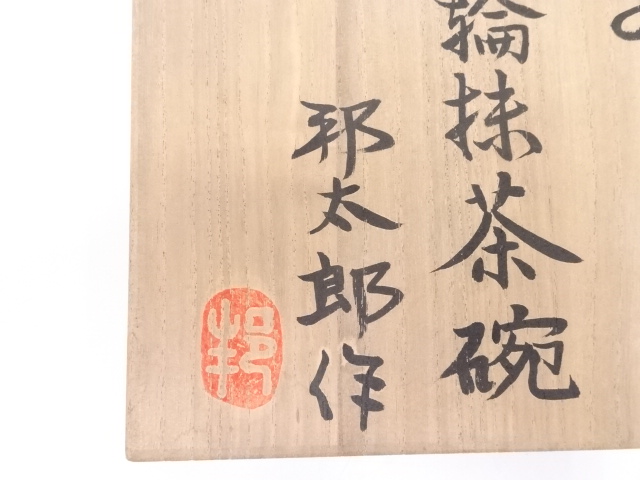 輪抹茶碗
邦太郎作
邦